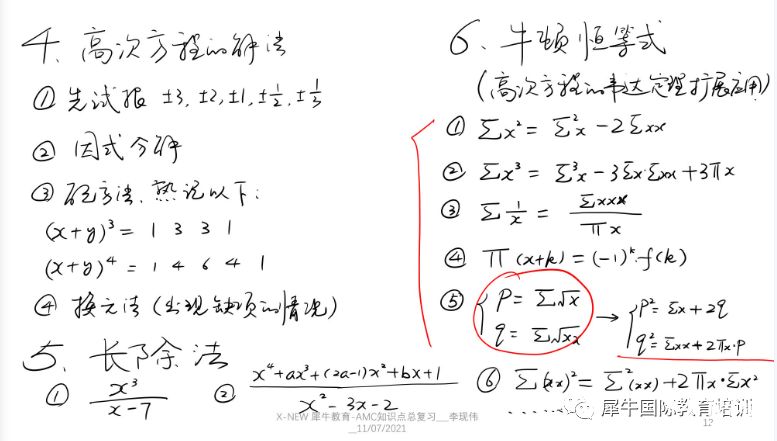 4、高次方程的解法
① 先试根 ±3, ±2, ±1, ±1/2, ±1/3
② 因式分解
③ 配方法、熟记以下:
(x+y)³ = 1 3 3 1
(x+y)⁴ = 1 4 6 4 1
④ 换元法 (出现缺项的情况)
5、长除法
① x³/(x-7) ② (x⁴+ax³+(2a-1)x²+bx+1)/(x²-3x-2)
6、牛顿恒等式
(高次方程的韦达定理扩展应用)
① Σx² = Σ²x - 2Σxx
② Σx³ = Σ³x - 3Σx·Σxx + 3πx
③ Σ1/x = Σxxx/πx
④ π(x+k) = (-1)ᵏ·f(k)
⑤ { p = Σ√x → { p² = Σx + 2q
q = Σ√xx q² = Σxx + 2πx·p
⑥ Σ(xx)² = Σ²(xx) + 2πx·Σx²
犀牛国际教育培训
X-NEW 犀牛教育-AMC知识点总复习__李现伟
__11/07/2021
12